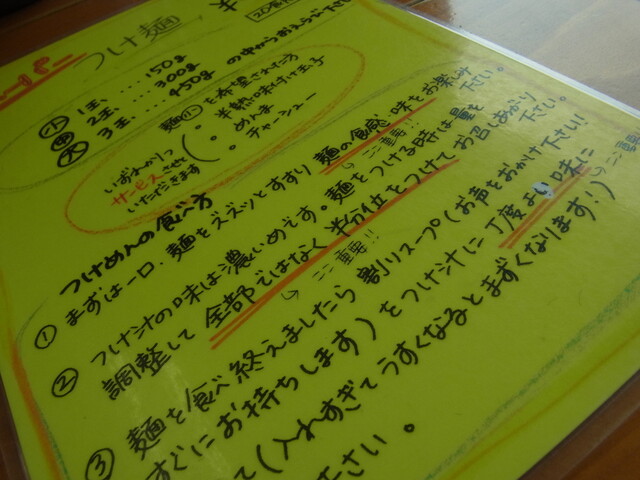 つけ麺
小 1玉....150g
中 2玉....300g
大 3玉....450g
の中からおえらび下さい
麺小を希望された方
いずれか1つ
サービスさせて
いただきます
半熟味付け玉子
めんま
チャーシュー
つけめんの食べ方
① まずは一口、麺をズズッとすすり 麺の食感・味をお楽しみ下さい。
ここ重要!!
② つけ汁の味は濃いめです。麺をつける時は量を
調整して 全部ではなく 半分位をつけて お召しあがり下さい。
ここ重要!!
③ 麺を食べ終えましたら 割りスープ(お声をおかけ下さい!
すぐにお持ちします)をつけ汁に 丁度よい味に
ここ重要
て(入れすぎてうすくなるとまずくなります!)
下さい。